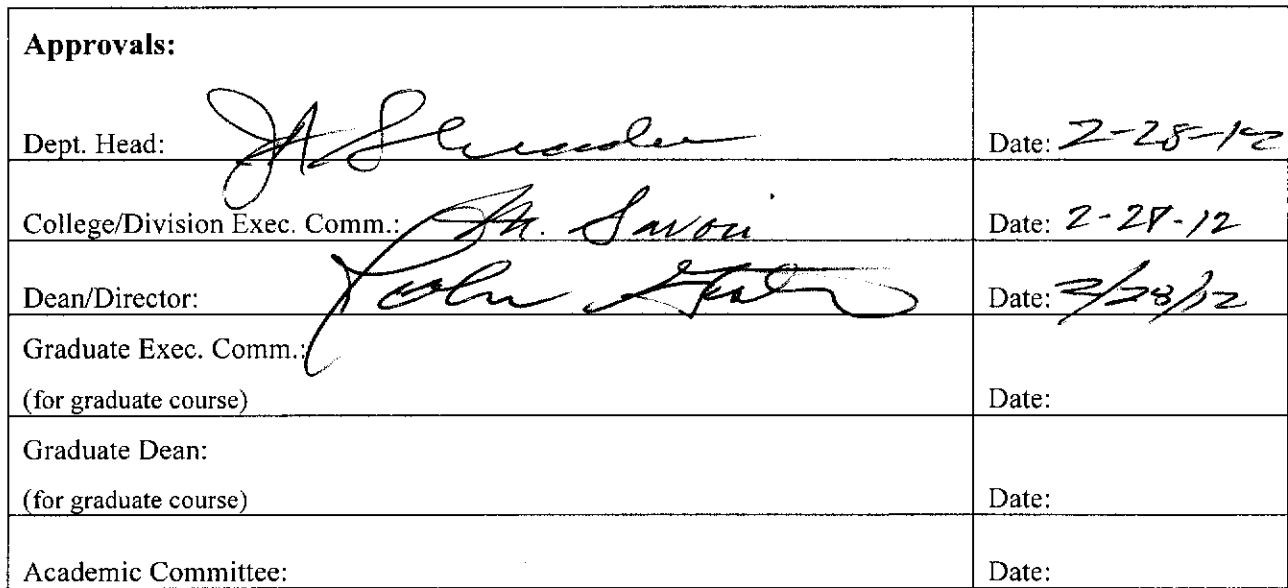 Approvals:
Dept. Head: Date: 2-28-12
College/Division Exec. Comm.: M. Savoie Date: 2-28-12
Dean/Director: John Date: 2/28/12
Graduate Exec. Comm.:
(for graduate course) Date:
Graduate Dean:
(for graduate course) Date:
Academic Committee: Date: